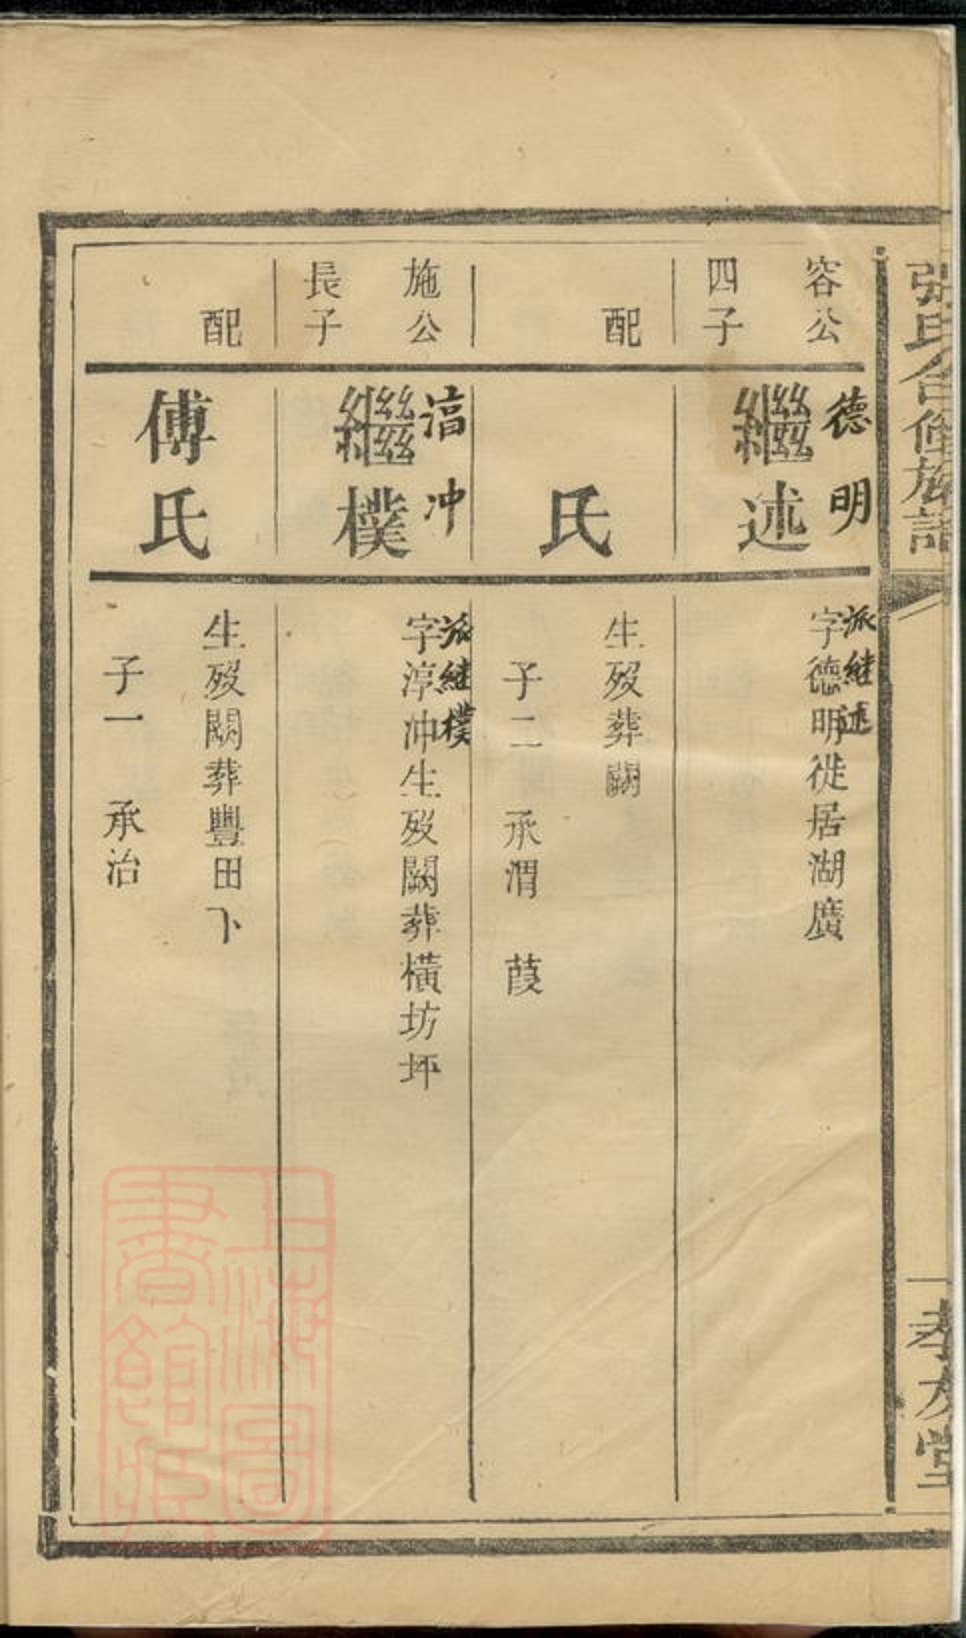 張氏合修族譜
孝友堂
容公
四子
德明
繼述
派継述
字德明徙居湖廣
配
氏
生歿葬闕
子二 承渭 葭
施公
長子
冲
繼樸
派継樸
字淳冲生歿闕葬橫坊坪
配
傅氏
生歿闕葬豐田下
子一 承治
上海圖
書館藏